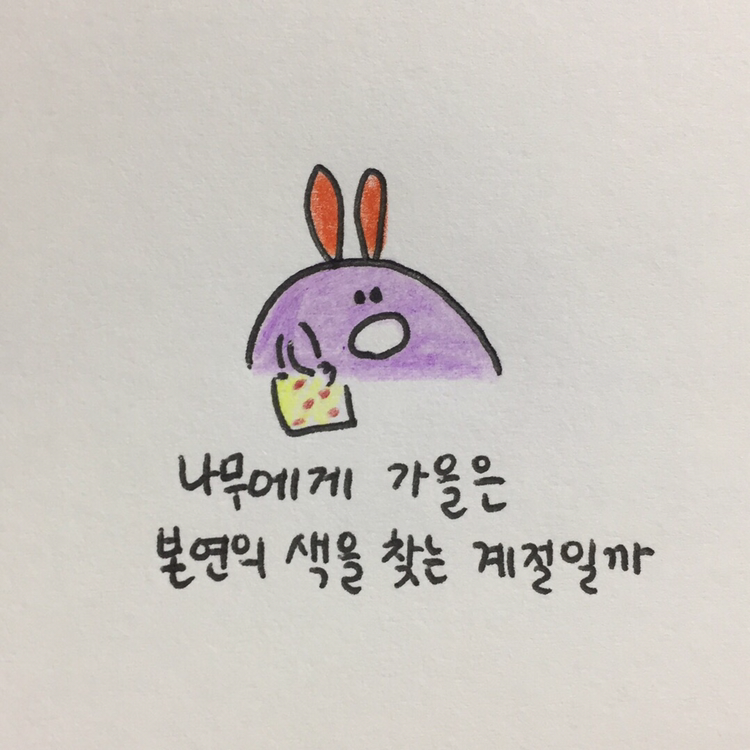 나무에게 가을은
본연의 색을 찾는 계절일까